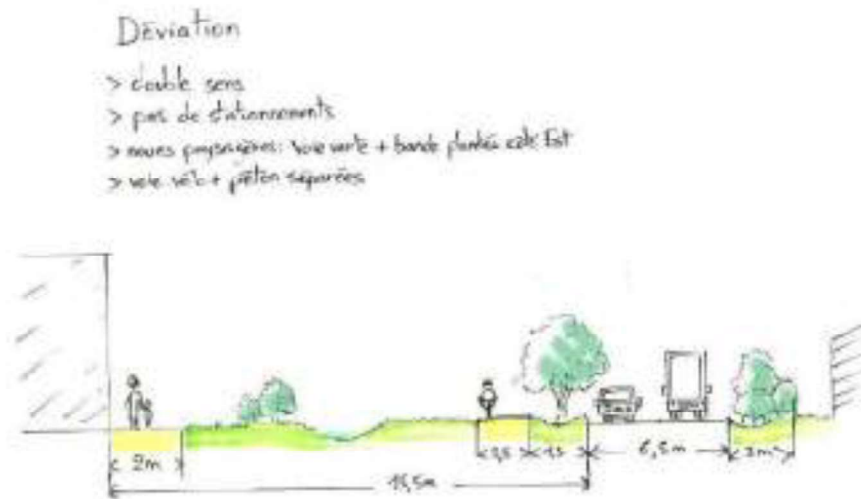 Déviation
> double sens
> pas de stationnements
> noues paysagères: voie verte + bande plantée côté Est
> voie vélo + piéton séparées
2m
1,5
6,5m
2m
15,5m